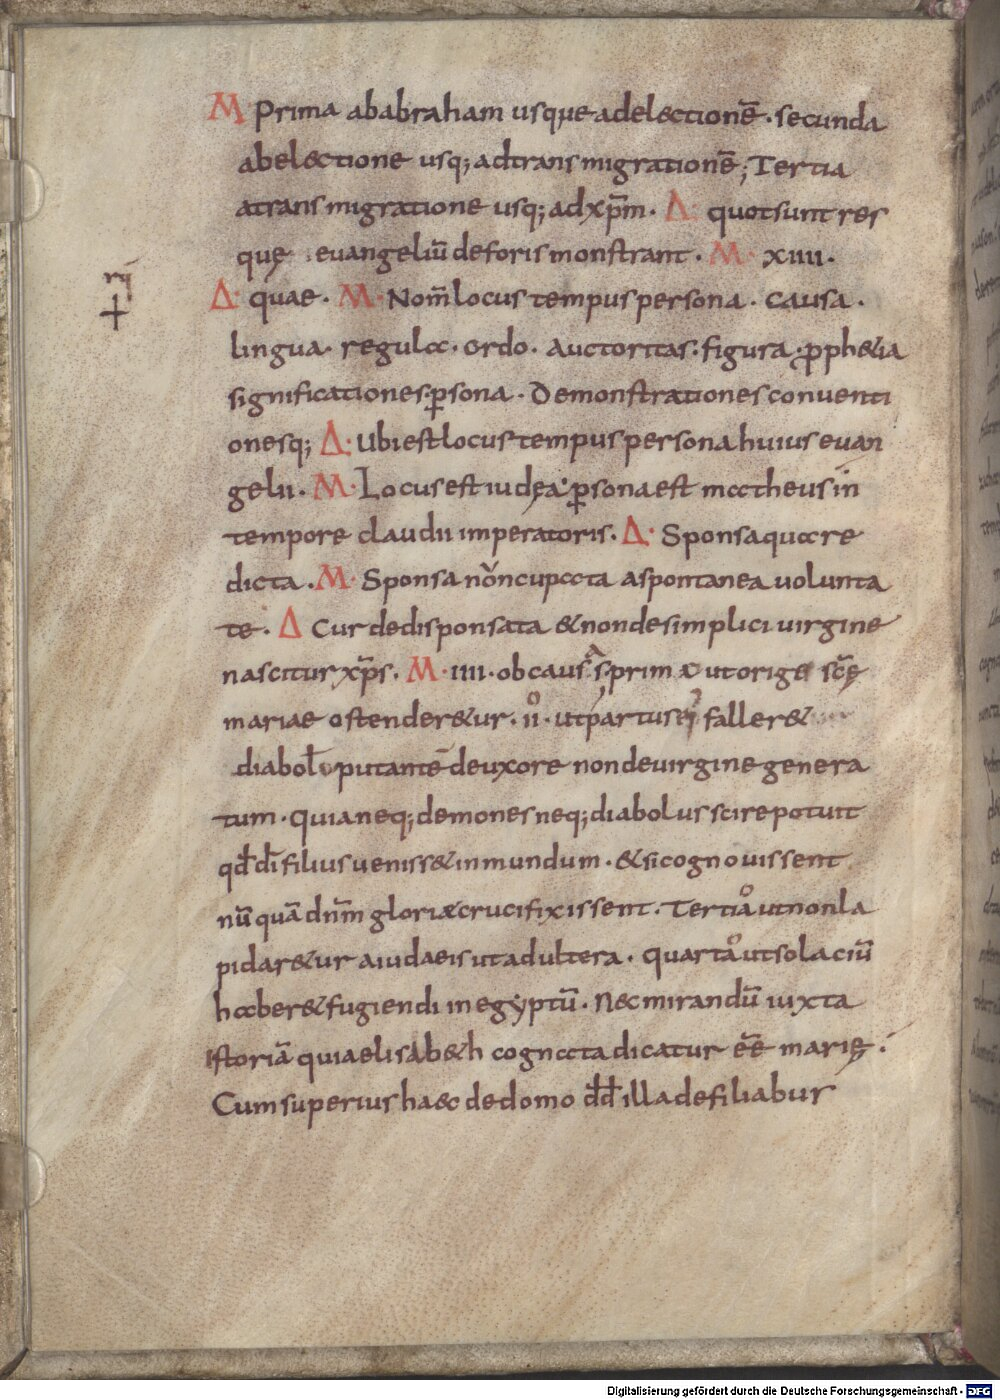 M Prima ababraham usque adel&ctionē · secunda
abel&ctione usq; adtransmigrationē; Tertia
atransmigratione usq; adxp̄m · Δ: quotsunt res
quę euangeliū deforis monstrant · M · xiiii ·
Δ: quae · M · Nom̄ locus tempus persona · causa ·
lingua · regula · ordo · auctoritas · figura · ꝓph&ia
significationes · ꝑsona · Demonstrationes conuenti
onesq; Δ: Ubi est locus tempus persona huius euan
gelii · M · Locus est iudęa · ꝑsona est matheus in
tempore claudii imperatoris · Δ · Sponsa quare
dicta · M · Sponsa noncupata aspontanea uolunta
te · Δ Cur dedisponsata & non desimplici uirgine
nascitur xp̄s · M · iiii · ob causas · prima ut orige scę̄
mariae ostender&ur · iiº · ut partus ei faller&
diabol putantē deuxore non deuirgine genera
tum · quia neq; demones neq; diabolus scire potuit
qd̄ dī filius ueniss& in mundum · & sic cognouissent
nū quā dn̄m gloriæ crucifixissent · Tertiaº ut non la
pidar&ur a iudaeis ut adultera · quartaº ut solaciū
haber& fugiendi in egyptū · N&c mirandū iuxta
istoriā quia elisab&h cognata dicatur eē̄ marię ·
Cum superius haec de domo dd̄ illa de filiabur
Digitalisierung gefördert durch die Deutsche Forschungsgemeinschaft - DFG